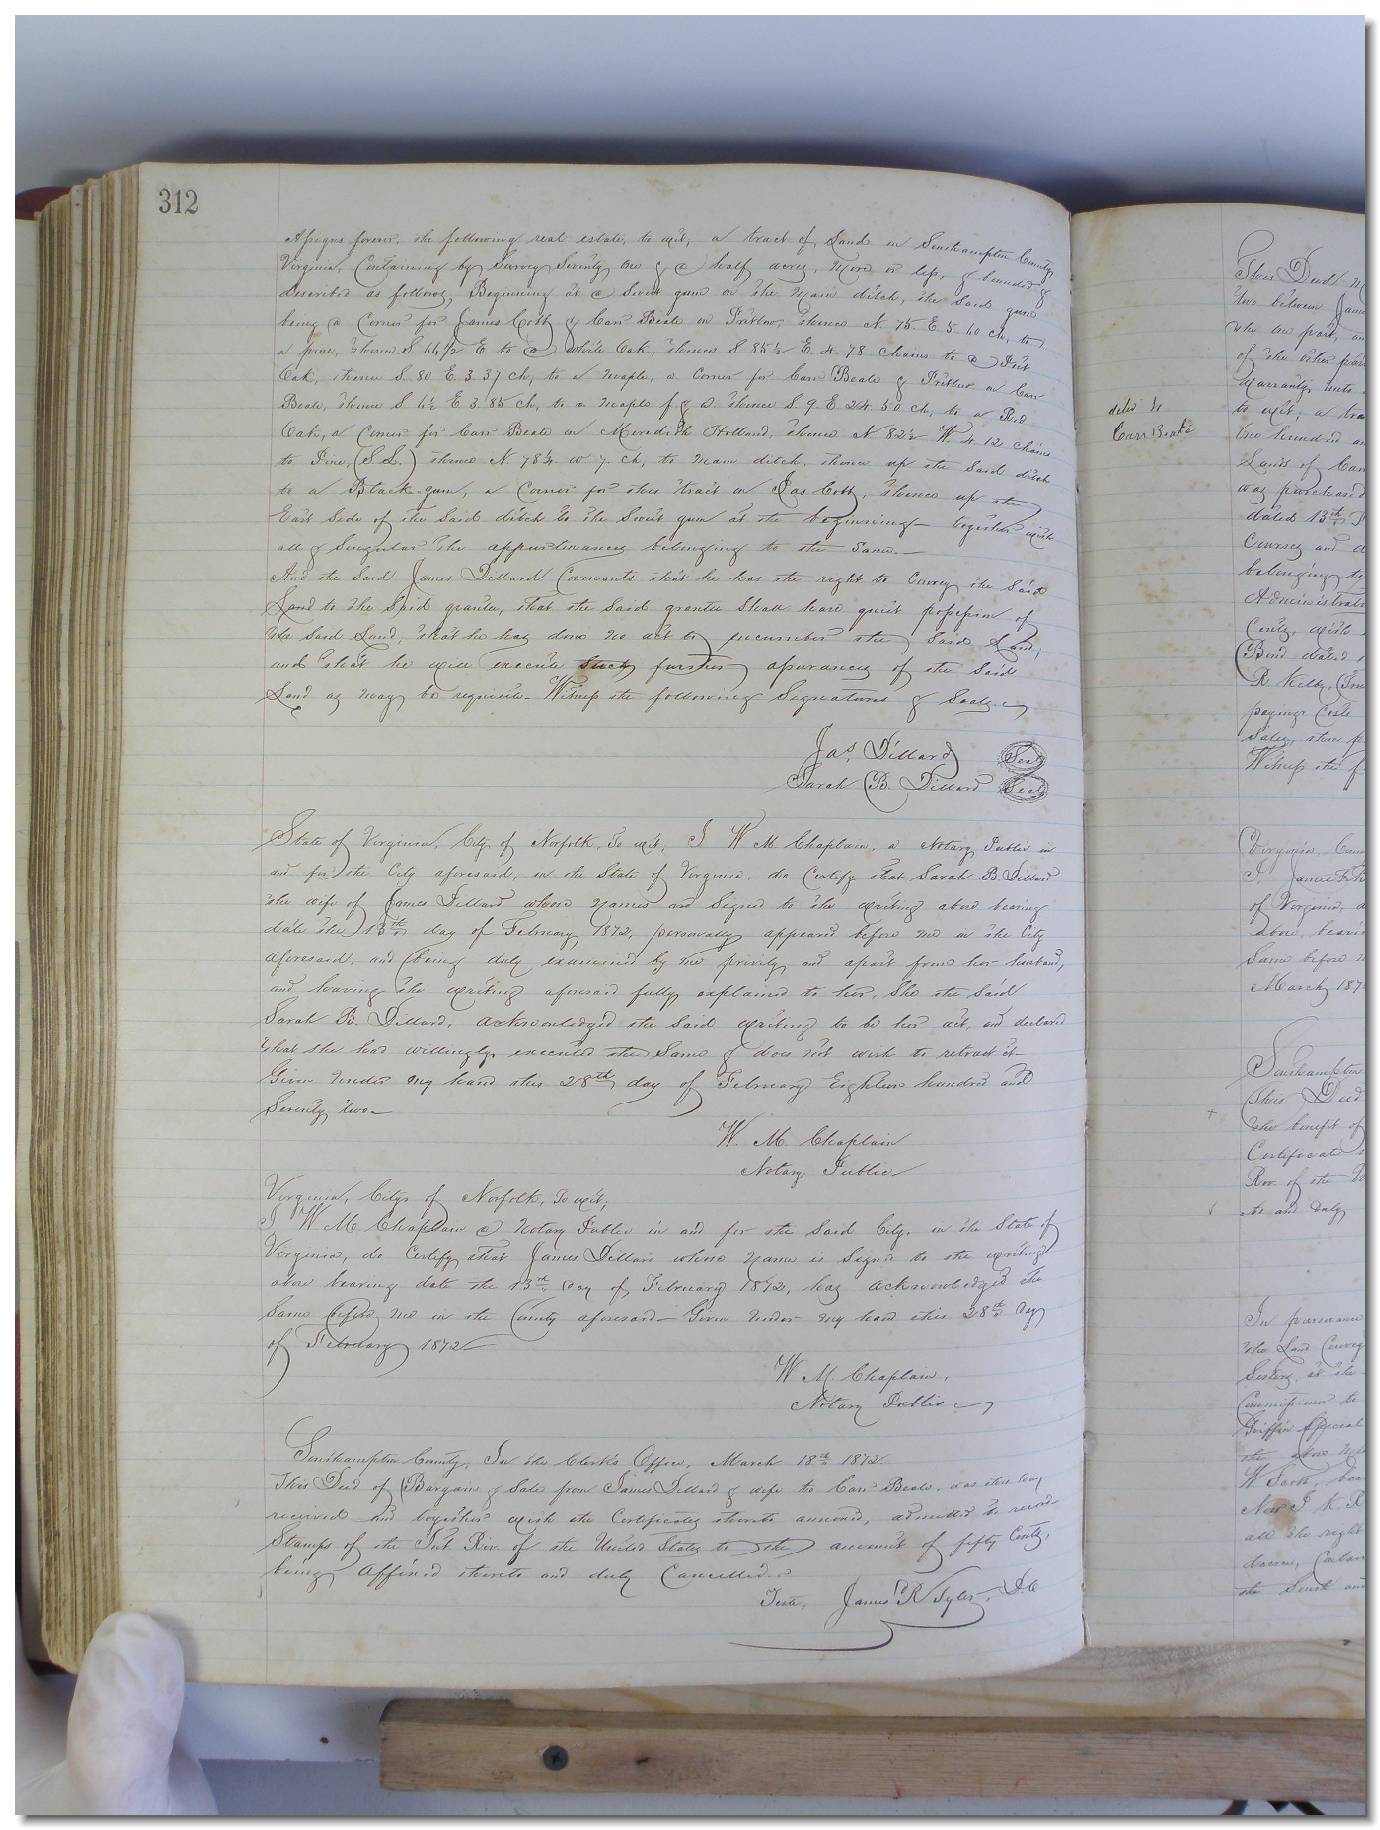 312
Assigns forever, the following real estate, to wit, a tract of Land in Southampton County
Virginia, Containing by Survey Seventy one & a half acres, more or less, & bounded &
described as follows, Beginning at a Sweet gum on the main ditch, the Said gum
being a Corner for James Cobb & Carr Beale on Fretlow, thence N. 75. E 5.60 ch, to
a pine, thence S 66½ E to a white Oak, thence S 85½ E 4.78 chains to a
Oak, thence S. 80 E. 3.37 ch, to a maple, a Corner for Carr Beale & Fretlow on Carr
Beale, thence S 6½ E 3.85 ch, to a maple f & a. thence S 9 E 24.50 ch, to a Red
Oak, a Corner for Carr Beale on Meredith Holland, thence N 82½ W. 4.12 chains
to Pine, (S.L.) thence N. 78¼ w. 7. ch, to main ditch, thence up the Said ditch
to a Black-gum, a Corner for this tract on Jas Cobb, thence up the
East Side of the Said ditch to the Sweet gum at the beginning - together with
all & Singular the appurtenances belonging to the Same. -
And the Said James Dillard Covenants that he has the right to Convey the Said
Land to the Said grantee, that the Said grantee Shall have quiet possession of
the Said Land, that he has done no act to encumber the Said Land,
and that he will execute Such further assurances of the Said
Land as may be requisite - Witness the following Signatures & Seals. -
Jas. Dillard Seal
Sarah B. Dillard Seal
State of Virginia, City of Norfolk, To wit, I W M. Chaplain, a Notary Public in
and for the City aforesaid, in the State of Virginia, do Certify that Sarah B. Dillard
the wife of James Dillard whose names are Signed to the writing above bearing
date the 13th day of February 1872, personally appeared before me in the City
aforesaid, and being duly examined by me privily and apart from her husband,
and having the writing aforesaid fully explained to her, She the Said
Sarah B. Dillard, acknowledged the Said writing to be her act, and declared
that She had willingly executed the Same & does not wish to retract it -
Given under my hand this 28th day of February Eighteen hundred and
Seventy two -
W. M. Chaplain
Notary Public
Virginia, City of Norfolk, To wit;
I W M. Chaplain a Notary Public in and for the Said City, in the State of
Virginia, do Certify that James Dillard whose name is Signed to the writing
above bearing date the 13th day of February 1872, has acknowledged the
Same before me in the County aforesaid - Given under my hand this 28th day
of February 1872
W M. Chaplain,
Notary Public
Southampton County, In the Clerk's Office, March 18th 1872
This Deed of Bargain & Sale from James Dillard & wife to Carr Beale, was this day
received and together with the Certificates thereto annexed, admitted to record
Stamps of the Int. Rev. of the United States to the amount of fifty Cents,
being affixed thereto and duly Cancelled.
Teste, James R Tyler, D.C
deld to
Carr Beale
This Deed
between James
the one part, an
of the other par
warranty unto
to wit, a tra
two hundred an
Lands of Carr
was purchased
dated 13th
Courses and
belonging
Administrat
Cents, with
Bond dated
R. Kelly,
paying Costs
Sales,
Witness the f
Virginia,
I. James
of Virginia, d
above, beari
Same before m
March 187
Southampton
This Deed
the benefit of
Certificate
Rev. of the
and duly
In pursuance
the Land Convey
Sisters, at the
Commissioner to
Griffin Special
the
W
Now I
all the right
the South and